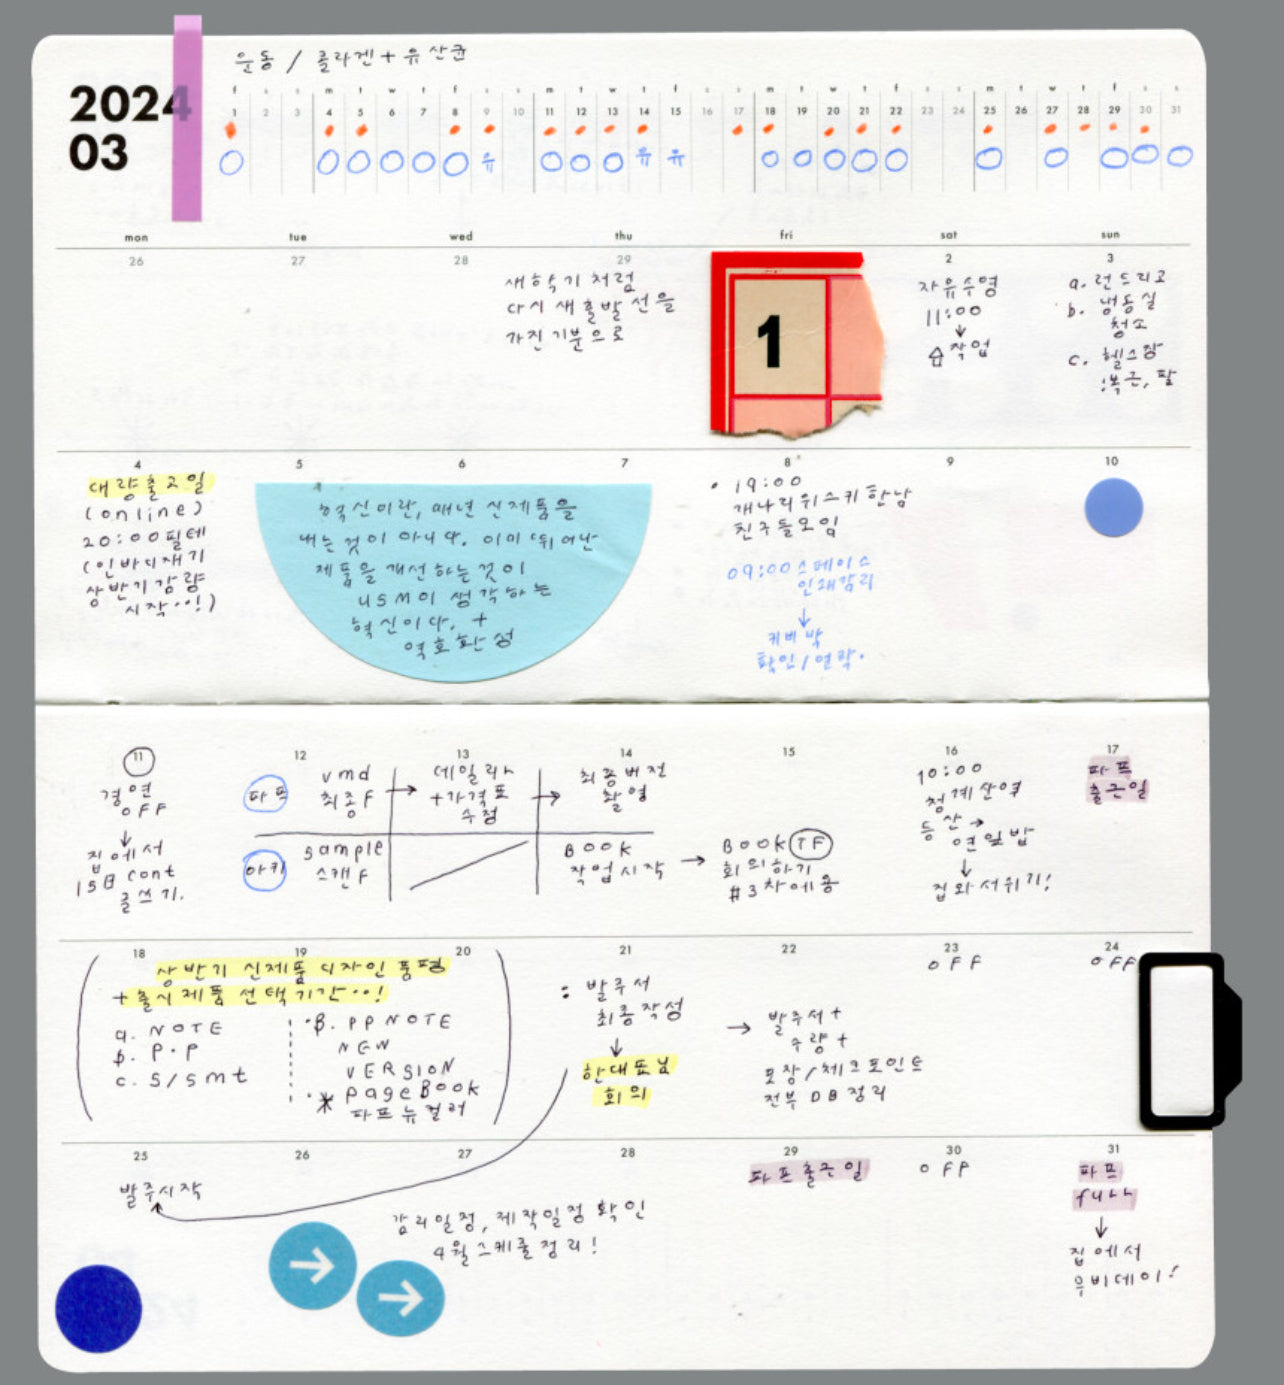 운동 / 콜라겐 + 유산균
2024
03
f s s m t w t f s s m t w t f s s m t w t f s s m t w t f s s
1 2 3 4 5 6 7 8 9 10 11 12 13 14 15 16 17 18 19 20 21 22 23 24 25 26 27 28 29 30 31
유 유 유
mon tue wed thu fri sat sun
26 27 28 29 2 3
새학기 처럼
다시 새출발선을
가진 기분으로
1
자유수영
11:00
↓
작업
a. 런드리고
b. 냉동실
청소
c. 헬스장
:복근, 팔
4 5 6 7 8 9 10
대량출고일
(online)
20:00 필테
(인바디재기
상반기감량
시작..!)
혁신이란, 매년 신제품을
내는 것이 아니다. 이미 뛰어난
제품을 개선하는것이
USM이 생각하는
혁신이다. +
역호환성
• 19:00
개나리위스키 한남
친구들모임
09:00 스페이스
인쇄감리
↓
커버 박
확인/연락.
11 12 13 14 15 16 17
경연
OFF
↓
집에서
15日 cont
글쓰기.
파프
vmd
최종F
→
데일리
+가격표
수정
→
최종버전
촬영
아카
sample
스캔F
BOOK
작업시작
→
BOOK TF
회의하기
#3차내용
10:00
청계산역
등산 →
연잎밥
↓
집와서쉬기!
파프
출근일
18 19 20 21 22 23 24
상반기 신제품디자인 품평
+출시제품선택기간..!
a. NOTE
b. P.P
c. S/smt
B. PP NOTE
NEW
VERSION
* pageBook
파프뉴컬러
: 발주서
최종작성
↓
한대표님
회의
→
발주서+
수량+
포장/체크포인트
전부 DB정리
OFF
OFF
25 26 27 28 29 30 31
발주시작
감리일정, 제작일정 확인
4월스케줄정리!
→ →
파프출근일
OFF
파프
full
↓
집에서
무비데이!